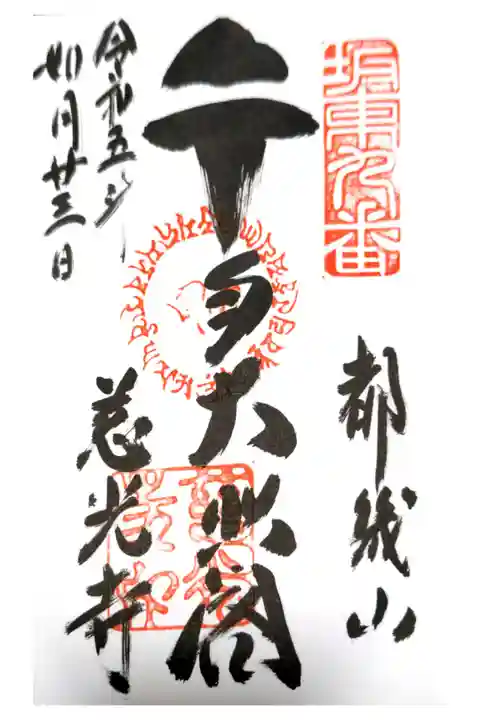 坂東九番
都幾山
大悲閣
慈光寺
令和五年
如月廿三日